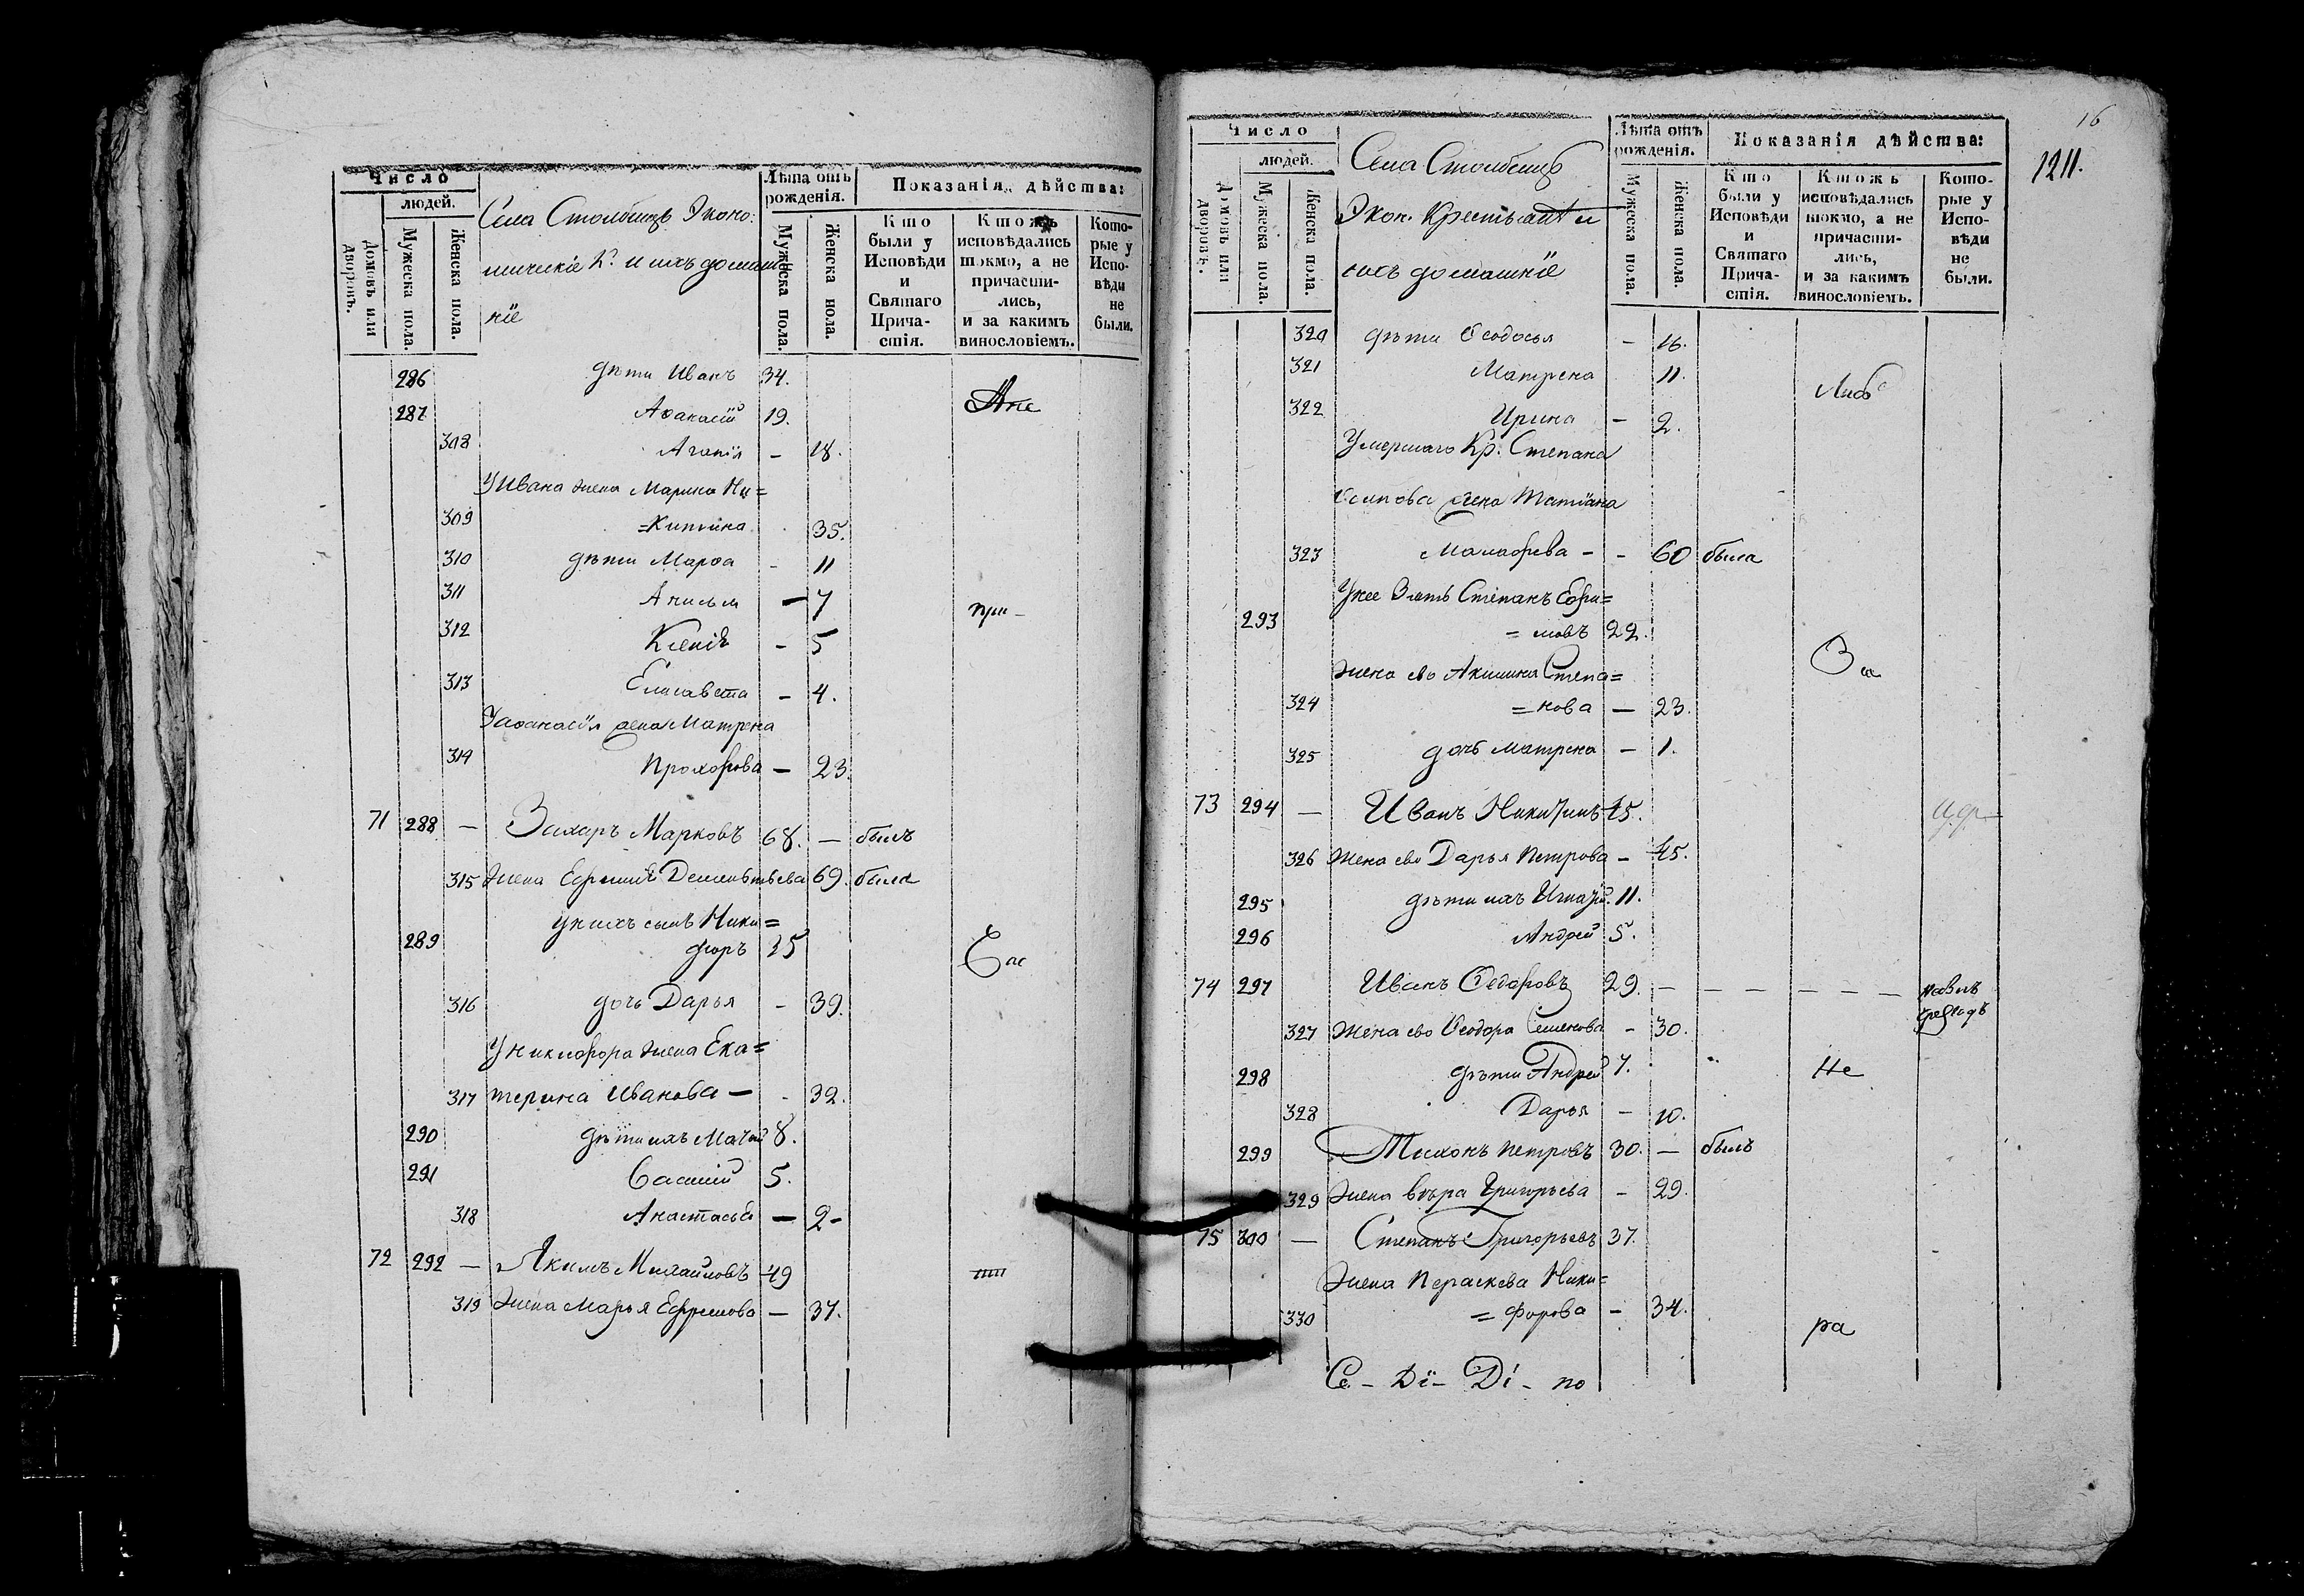 Число
людей.
Домовъ или дворовъ.
Мужеска пола.
Женска пола.
Села Столбищъ Эконо:
мическіе К: и ихъ домаш
ніе
Лѣта отъ рожденія.
Мужеска пола.
Женска пола.
Показанія дѣйства:
Кто были у Исповѣди и Святаго Причастія.
Ктожъ исповѣдались токмо, а не причастились, и за какимъ винословіемъ.
Которые у Исповѣди не были.
286 дѣти Иванъ 34.
287 Аѳанасій 19.
308 Агапія – 18.
У Ивана жена Марина Ни=
309 =китина 35.
310 дѣти Марѳа – 11
311 Анисья – 7 при –
312 Ксенія – 5
313 Елисавета – 4.
У Аѳанасія жена Матрена
314 Прохорова – 23.
71 288 – Захаръ Марковъ 68. – былъ
315 жена Ефимія Дементьева 69. была
у нихъ сынъ Ники=
289 форъ 35
316 дочь Дарья – 39.
У Никифора жена Ека=
317 терина Иванова – – 32.
290 дѣти ихъ 8.
291 Василій 5.
318 Анастасья – 2 –
72 292 – Якимъ Михайловъ 49
319 жена Марья Ефремова – 37.
16
1211.
Число
людей.
Домовъ или дворовъ.
Мужеска пола.
Женска пола.
Села Столбищъ
Экон. Крестьянъ и
ихъ домашніе
Лѣта отъ рожденія.
Мужеска пола.
Женска пола.
Показанія дѣйства:
Кто были у Исповѣди и Святаго Причастія.
Ктожъ исповѣдались токмо, а не причастились, и за какимъ винословіемъ.
Которые у Исповѣди не были.
320 дѣти Ѳеодосья – 16.
321 Матрена 11.
322 Ирина – 2.
Умершаго Кр: Степана
Осипова жена Татіана
323 – – 60 была
У нее Зять Степанъ Ефи=
293 = мовъ 22.
За
жена ево Акилина Степа=
324 =нова – 23.
325 дочь Матрена – 1.
73 294 – Иванъ Никитинъ 45.
326 Жена ево Дарья Петрова – 45.
295 дѣти ихъ Игнатій 11.
296 Андрей 5.
74 297 Иванъ Ѳедоровъ 29. – – – – – –
327 Жена ево Ѳеодора Семенова – 30.
298 дѣти Андрей 7. Не
328 Дарья – 10.
299 Тихонъ Петровъ 30. – былъ
329 жена Вѣра Григорьева – 29.
75 300 – Степанъ Григорьевъ 37.
жена Пераскева Ники=
330 = форова – 34.
ра
Се – Дї – Дї – по